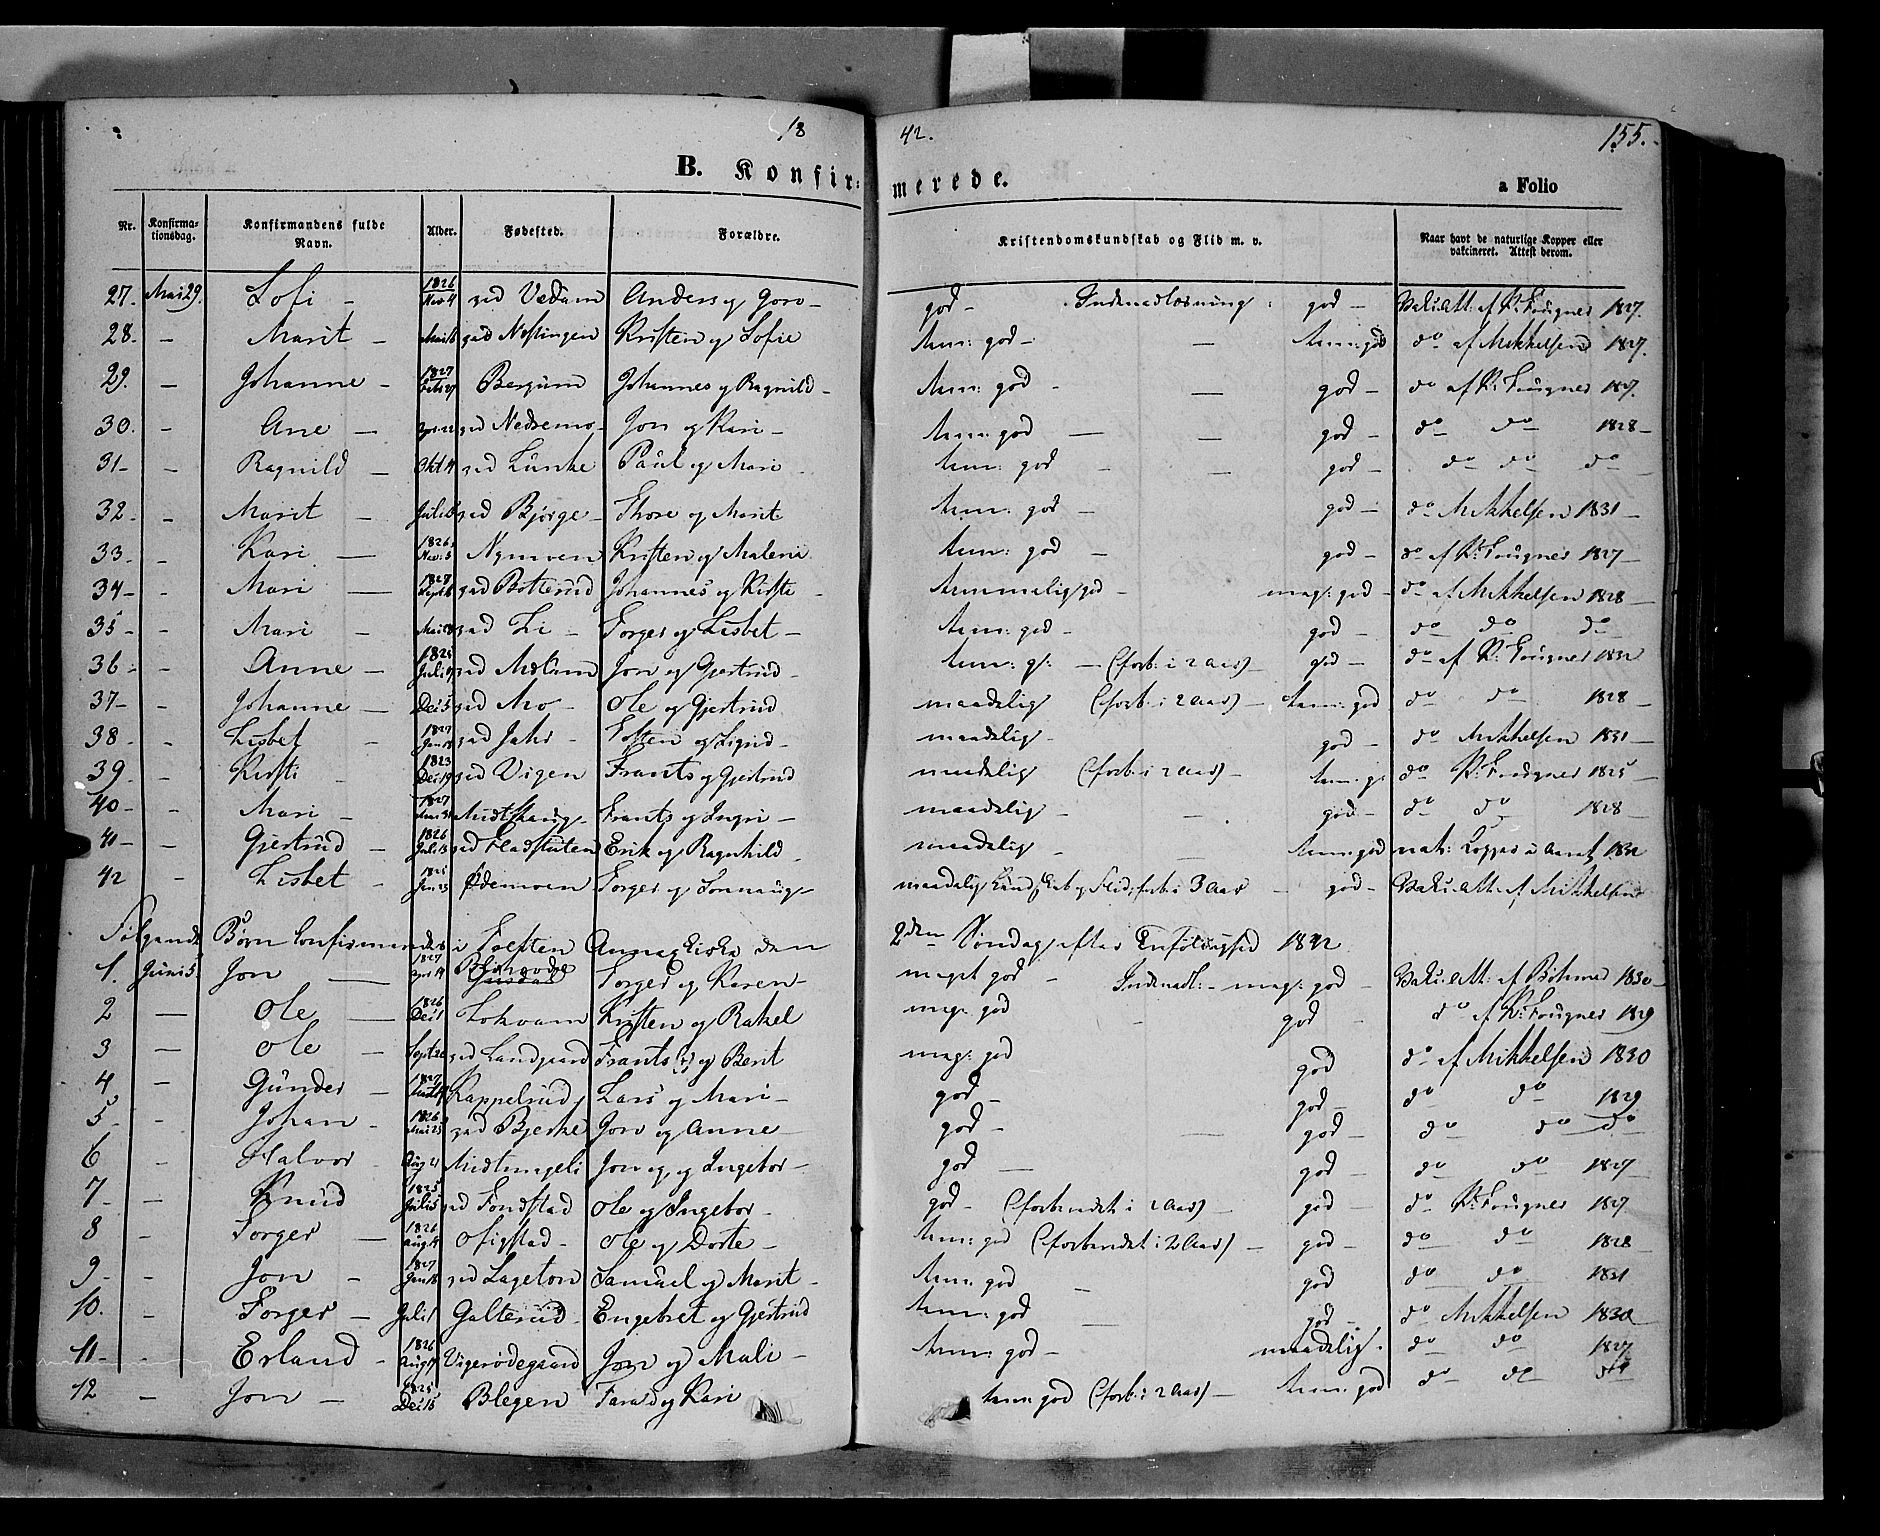 18 42. 155.
B. Konfir: merede. a Folio
Nr. Konfirma-tionsdag. Konfirmandens fulde Navn. Alder. Fødested. Forældre. Kristendomskundskab og Flid m. v. Naar havt de naturlige Kopper eller vakcineret. Attest derom.
27. Mai 29. Sofi - 1826 Nov 4 Anders og Goro - god - Indenadlæsning god - Vakc: Att: af K: Fougner 1827.
28. - Marit - Kristen og Sofie tem: god - - tem: god do af Mikkelsen 1827.
29. - Johanne - 1827 Febr 27 Bergum Johannes og Ragnild - tem: god - god - do af K: Fougner 1827.
30. - Ane - Nedremo - Jon og Kari - tem: god - - god - do do 1828 -
31 - - Ragnild - Okt 4 Lunke Paul og Mari - tem: god - - god - do do do
32. - Marit - Juli Bjørge - Thore og Marit tem: god - god - do Mikkelsen 1831 -
33 - - Kari - 1826 Nov: 5 Nymoen Kristen og Maleni tem: god - god - do af K: Fougner 1827 -
34 - - Mari - 1827 Botterud Johannes og Kirsti - temmelig god - meg: god - do af Mikkelsen 1828 -
35 - - Mari - Mai Li - Torger og Lisbet - tem: god - god - do do do
36 - - Anne - 1825 Juli Jon og Gjertrud - tem: g: - (forb: i 2 Aar) - god - do af K: Fougner 1832
37 - - Johanne - Dec 5 Mo - Ole og Gjertrud maadelig (forb: i 2 Aar) - tem: god do do 1828 -
38 - Lisbet - 1827 Jan Jahr - Tosten og Sigrid - maadelig - god - do Mikkelsen 1831 -
39 - Kirsti - 1823 Dec 19 Vigen Frants og Gjertrud maadelig (forb: i 2 Aar) - tem: g: do K: Fougner 1825 -
40 - - Mari - 1827 Midthaug - Frants og Ingri - maadelig - - god - do do 1828 -
41 - - Gjertrud - 1826 Juli Fladstuten Erik og Ragnhild maadelig - - tem: god nat: Kopper i Aaret 1832
42 - Lisbet - 1825 Jan 23 Ødemoen Torger og Ronnaug - maadelig Kundskab og Flid, forb: i 3 Aar - god - Vakc: Att: af Mikkelsen
Følgende Børn confirmeredes i Follebu Annexkirke den 2den Søndag efter Trefoldighed 1842
1. Juni 5 Jon - 1827 Apr 14 Torger og Karen - meget god - Indenadl: - meg: god - Vakc: Att: af Bøhmer 1830 -
2 - Ole - 1826 Dec 1 Lokvam Kristen og Rakel meg: god - god - do af K: Fougner 1829
3 - Ole - Sept 26 Landgaard Frants (?) og Berit meg: god god do af Mikkelsen 1830
4 - Gunder - 1827 Kappelrud Lars og Mari - god - god - do do 1829
5 - - Johan - 1826 Mai 25 Bjerke Jon og Anne - god - - god - do do do
6 - Halvor - Aug 21 Midtmageli Jon og og Ingebor - god - god - do do 1827 -
7 - - Knud 1825 Juli 5 Fondstad Ole og Ingebor - god - (forbundet i 2 Aar) - god - do K: Fougner 1827
8 - Torger - 1826 Aug Ofigstad - Ole og Dorte - tem: god (forbundet i 2 Aar) - god - do do 1828 -
9 - - Jon - 1827 Jan 18 Lageton Samuel og Marit - tem: god - god do do 1831
10. - Torger - Juli 1 Galterud - Engebret og Gjertrud tem: god - god - do Mikkelsen 1830
11 - - Erland - 1826 Aug 17 Vigerødegaard Jon og Mali - tem: god - maadelig - do do 1827
12 - Jon - 1825 Dec 15 Blegen Tarald og Kari tem: god (forb: i 2 Aar) - tem: god do do do